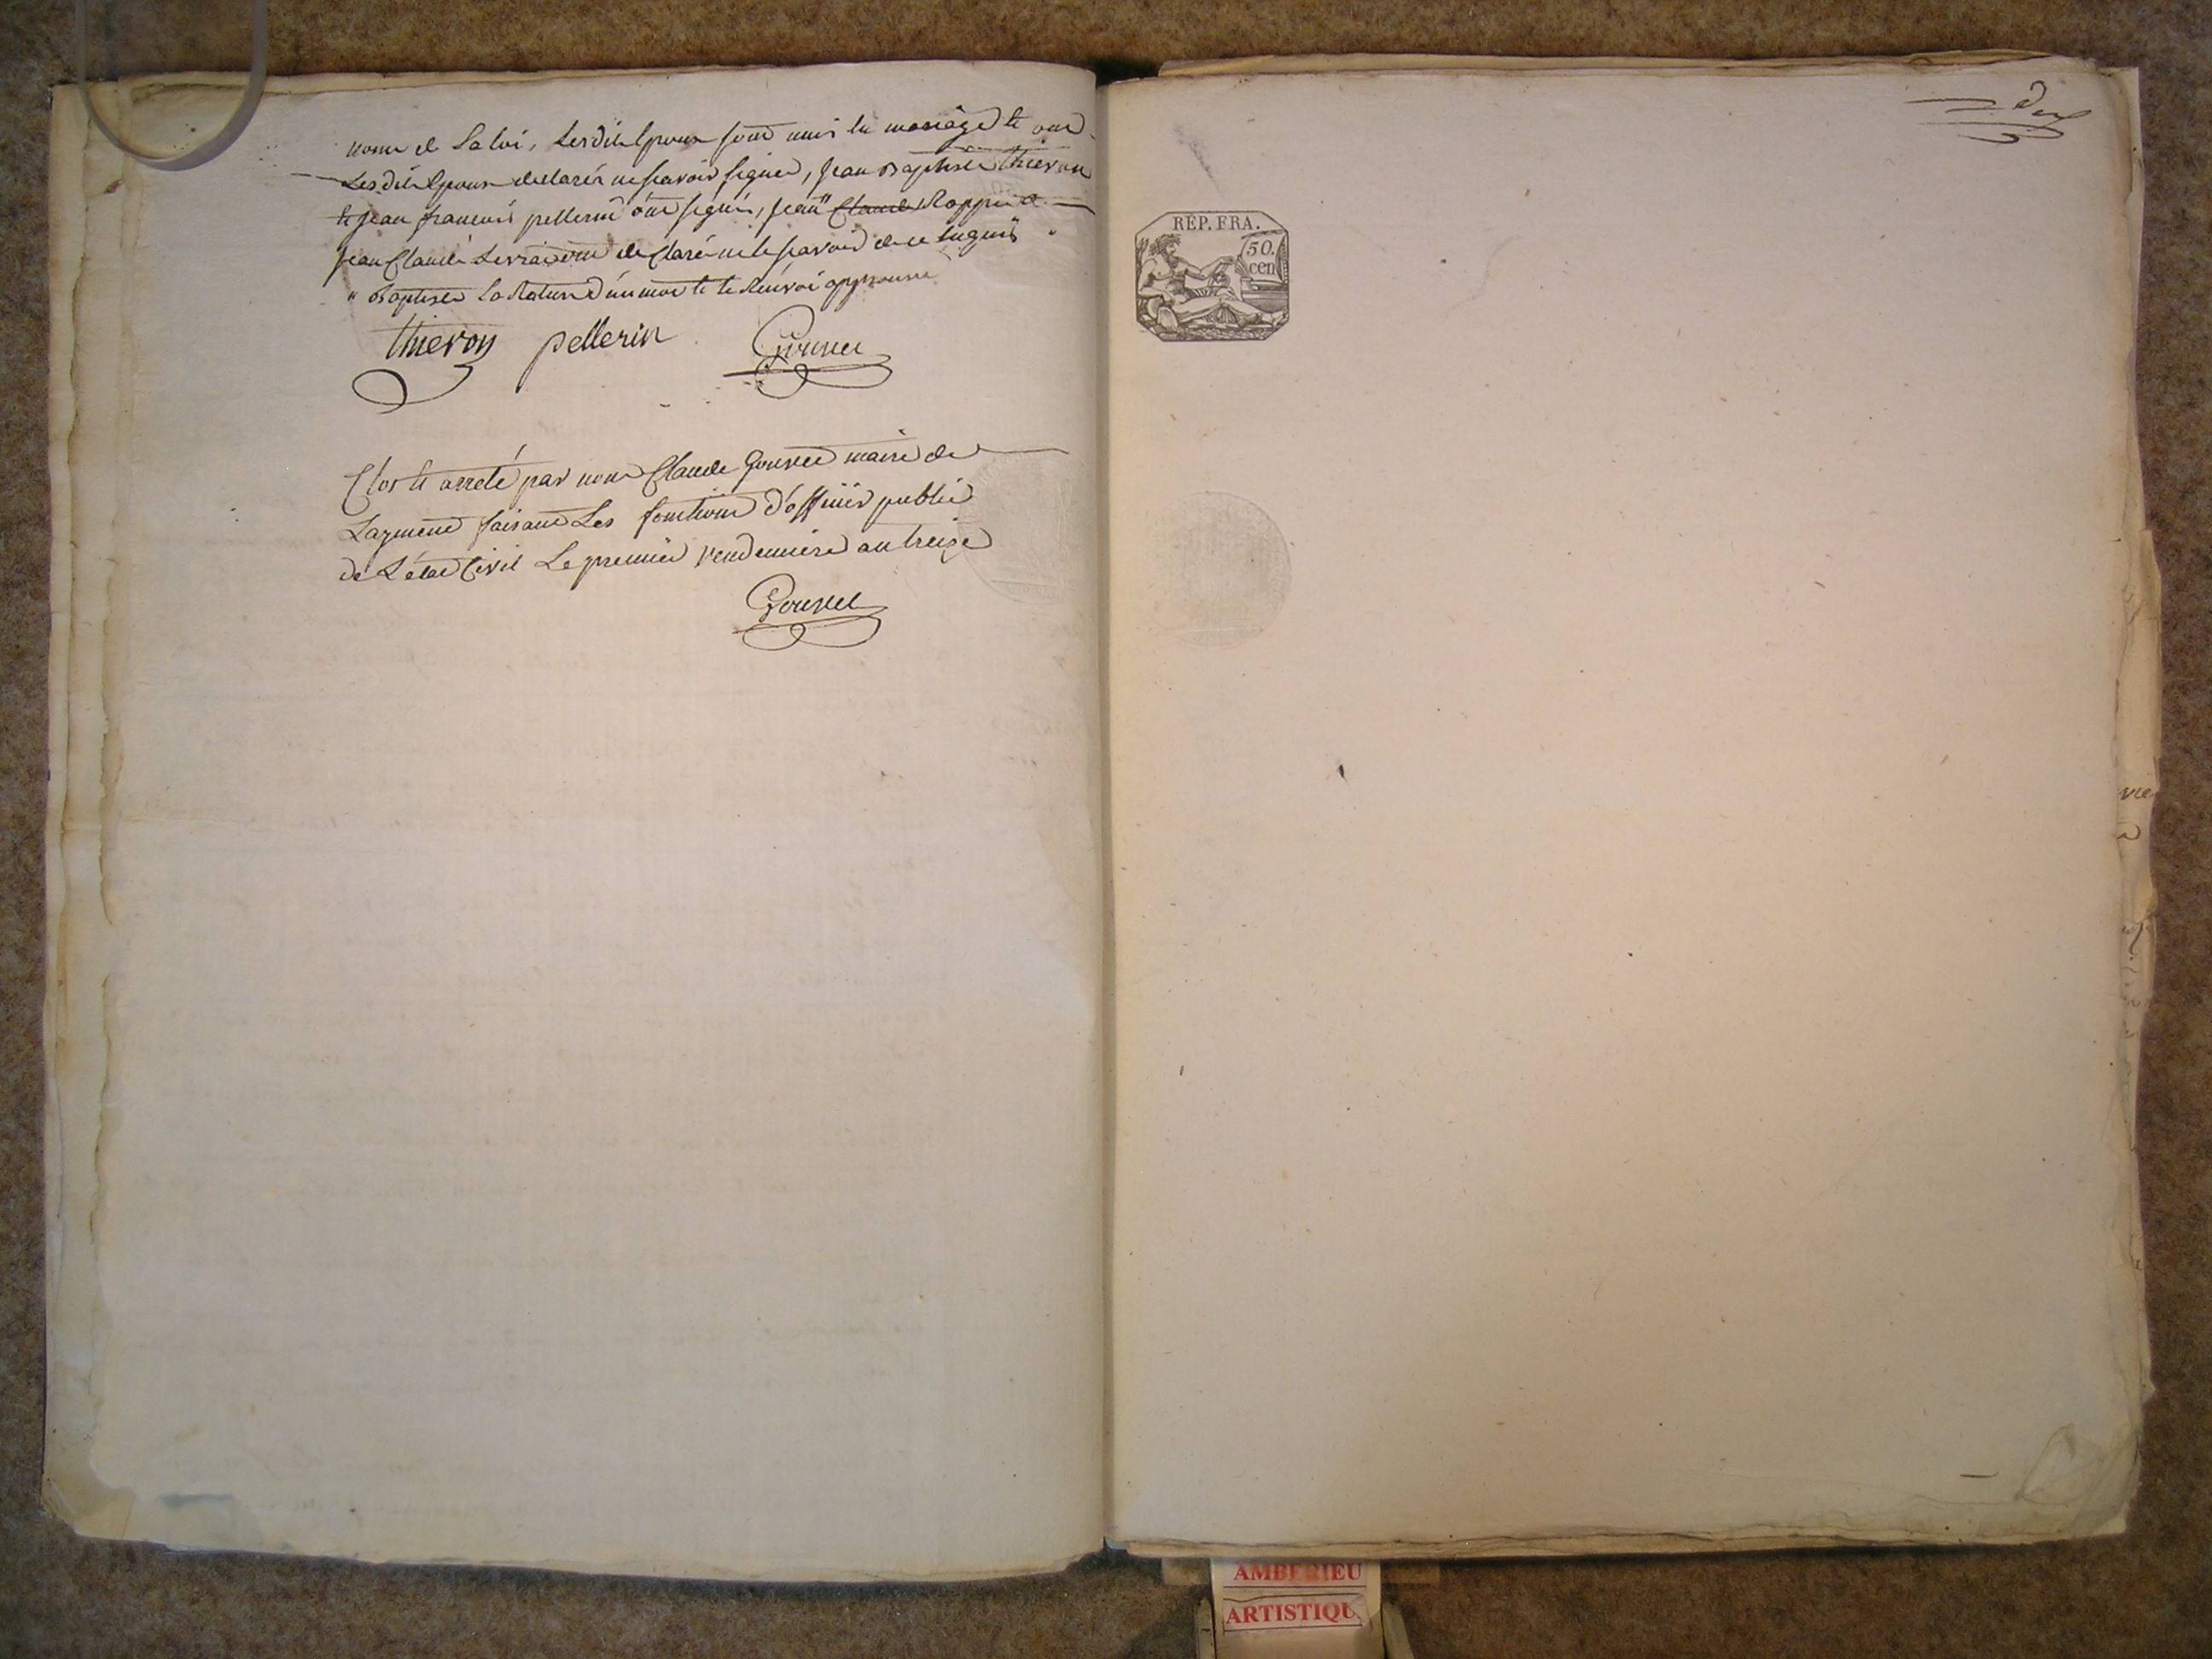 nom de la loi, lesdits époux sont unis en mariage et ont
lesdits époux declarés ne savoir signer, Jean Baptiste Thieron
et jean francois pellerin ont signés, Jean" Claude
Jean Claude ont declaré ne le savoir de ce enquis
" Baptiste la Rature d'un mot et le Renvoi approuvé
thieron pellerin Gourset
Clos et arreté par nous Claude Gourset maire de
Lagnieu faisant les fonctions d'officier public
de L'état Civil Le premier vendemiere an treize
Gourset
REP. FRA.
50.
cen
AMBERIEU
ARTISTIQU